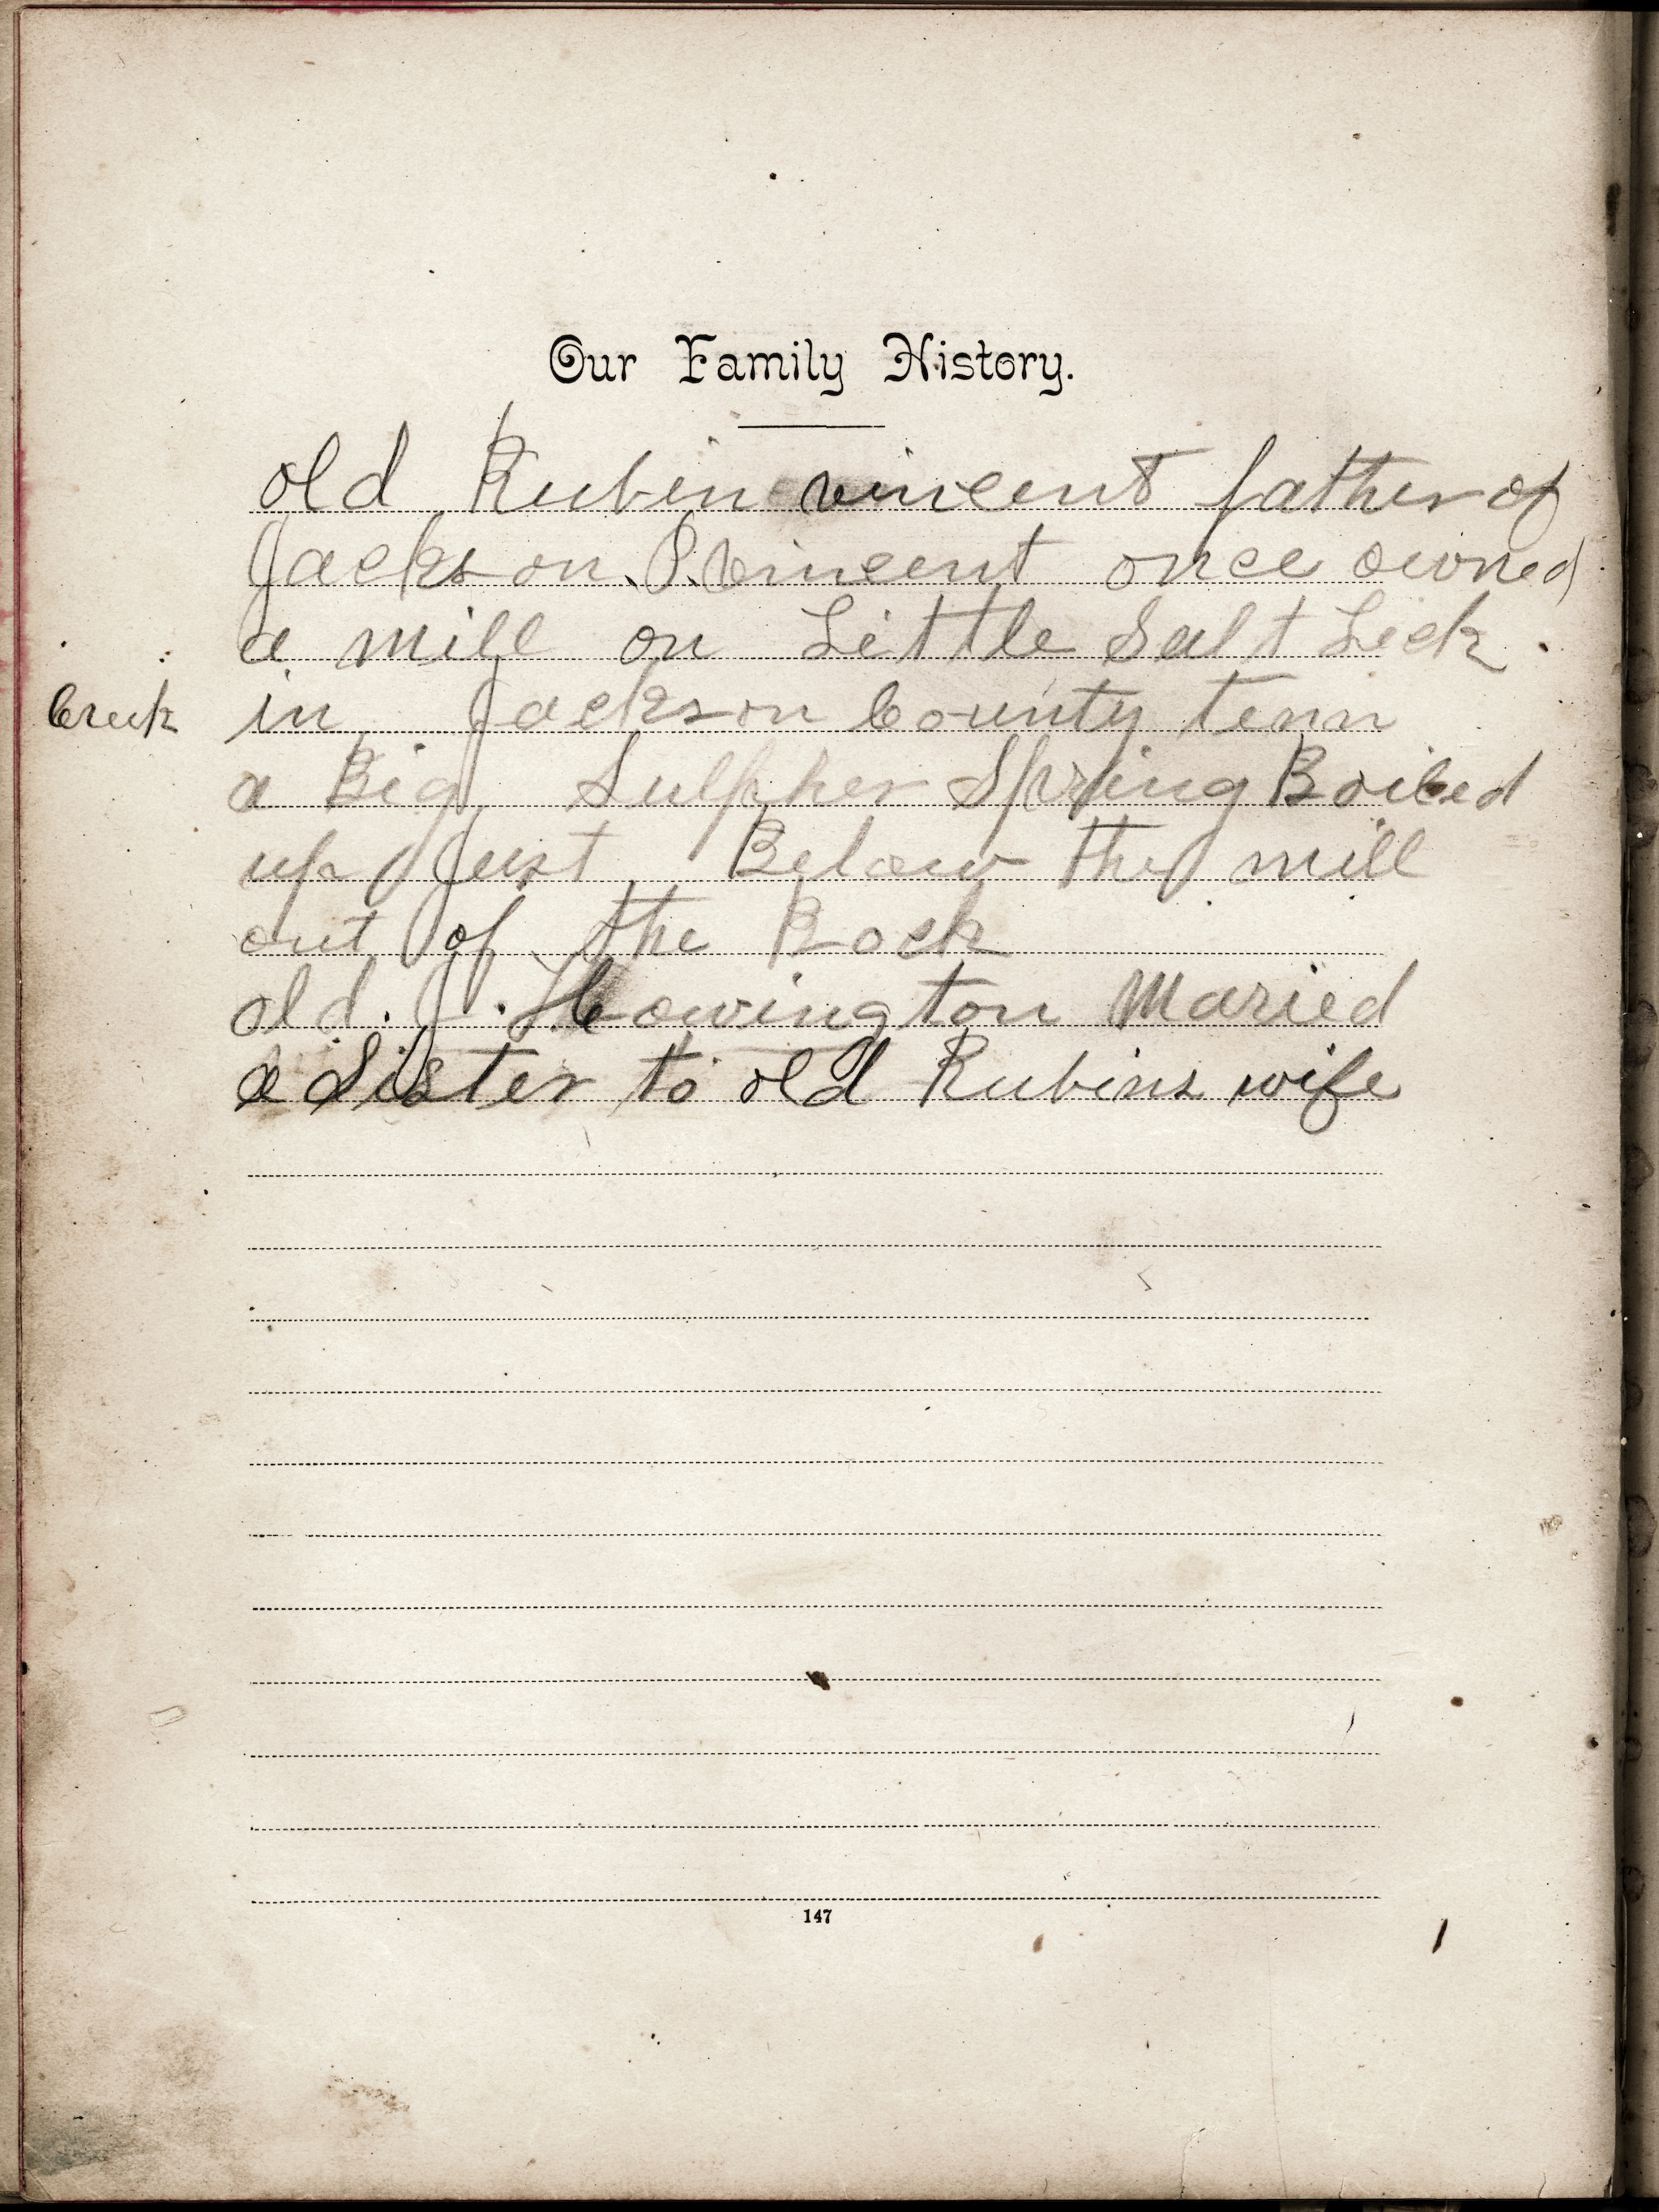 Our Family History.
old Rubin vincent father of
Jackson. P. vincent once owned
a mill on Little Salt Lick.
Creek in Jackson County tenn
a Big Sulpher Spring Boiled
up Just Below the mill
out of the Rock
old. J. Cowington Maried
a Sister to old Rubins wife
147